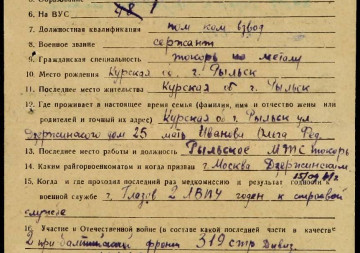 6. На ВУС 1
7. Должностная квалификация пом ком взвод
8. Военное звание сержант
9. Гражданская специальность токарь по металу
10. Место рождения Курская об. г. Рыльск
11. Последнее место жительства Курская об г. Рыльск
12. Где проживает в настоящее время семья (фамилия, имя и отчество жены или
родителей и точный их адрес) Курская об г. Рыльск ул.
Дзержинского дом 25 мать Иванова Ольга Фед.
13. Последнее место работы и должность Рыльское МТС токарь
14. Каким райгорвоенкоматом и когда призван г Москва Дзержинским
15. Когда и где проходил последний раз медкомиссию и результат годности к
военной службе г. Глазов 2 ЛВПУ годен к строевой
службе
16. Участие в Отечественной войне (в составе какой последней части и в качестве
2 прибалтийский фронт 319 стр Дивиз.